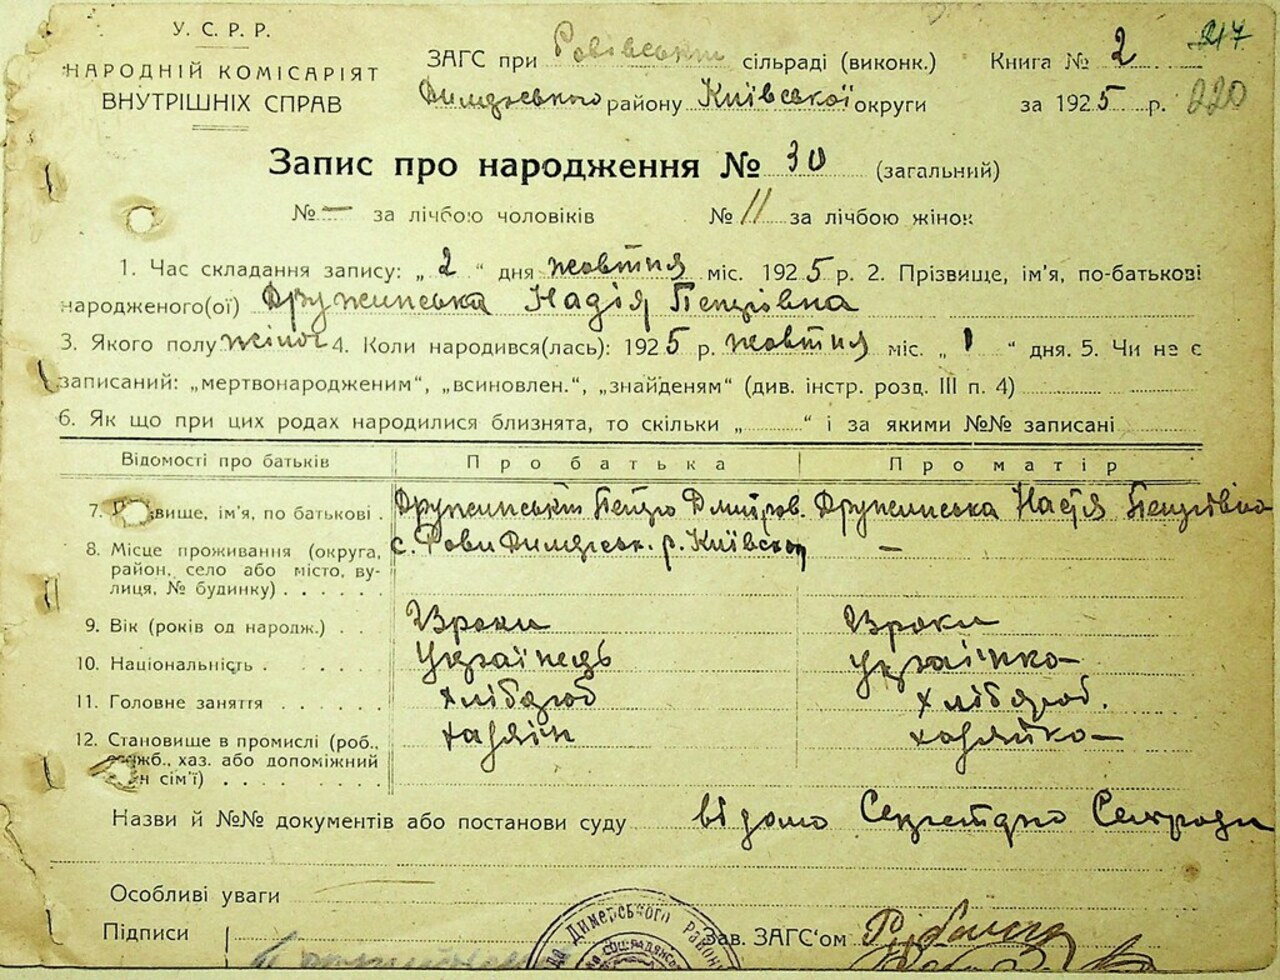 У. С. Р. Р.
НАРОДНІЙ КОМІСАРІЯТ
ВНУТРІШНІХ СПРАВ
ЗАГС при Ровівській сільраді (виконк.) Книга № 2 217
Димерського району Київської округи за 1925 р. 220
Запис про народження № 30 (загальний)
№ — за лічбою чоловіків № 11 за лічбою жінок
1. Час складання запису: „ 2 “ дня жовтня міс. 1925 р. 2. Прізвище, ім'я, по-батькові
народженого(ої) Дружинська Надія Петрівна
3. Якого полу жіноч 4. Коли народився(лась): 1925 р. жовтня міс. „ 1 “ дня. 5. Чи не є
записаний: „мертвонародженим“, „всиновлен.“, „знайденям“ (див. інстр. розд. III п. 4)
6. Як що при цих родах народилися близнята, то скільки „ “ і за якими №№ записані
Відомості про батьків Про батька Про матір
7. вище, ім'я, по батькові . Дружинський Петро Дмитров. Дружинська Настя Петрівна
8. Місце проживання (округа, район, село або місто, вулиця, № будинку) . . . . . . с. Рови Димерськ. р. Київської —
9. Вік (років од народж.) . . роки роки
10. Національність . . . . . Українець українка
11. Головне заняття . . . . . . хлібороб хлібороб.
12. Становище в промислі (роб., служб., хаз. або допоміжний член сім'ї) . . . . . . . . хазяін хозяйка
Назви й №№ документів або постанови суду відомо Секретарю Сельради
Особливі уваги
Підписи Зав. ЗАГС'ом
Димерського Району